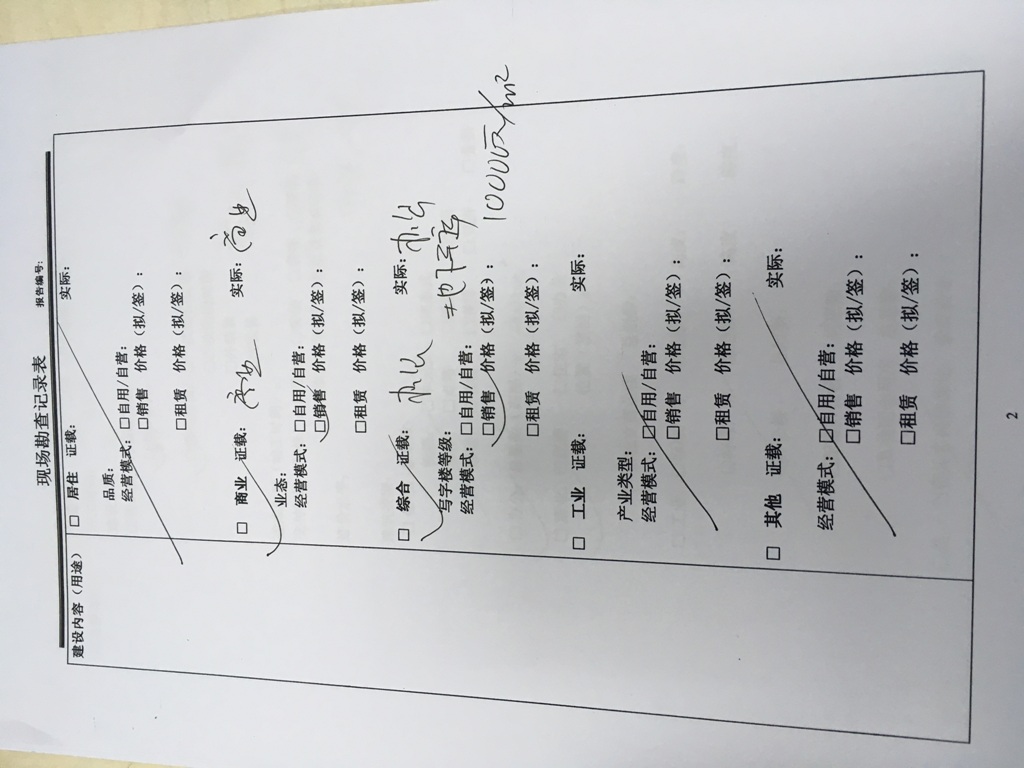 现场勘查记录表
报告编号:
建设内容（用途）
□ 居住 证载: 实际:
品质:
经营模式: □自用/自营:
□销售 价格（拟/签）:
□租赁 价格（拟/签）:
□ 商业 证载: 商业 实际: 商业
业态:
经营模式: □自用/自营:
□销售 价格（拟/签）:
□租赁 价格（拟/签）:
□ 综合 证载: 办公 实际: 办公
写字楼等级: 地下车库
经营模式: □自用/自营:
□销售 价格（拟/签）: 10000元/m²
□租赁 价格（拟/签）:
□ 工业 证载: 实际:
产业类型:
经营模式: □自用/自营:
□销售 价格（拟/签）:
□租赁 价格（拟/签）:
□ 其他 证载: 实际:
经营模式: □自用/自营:
□销售 价格（拟/签）:
□租赁 价格（拟/签）:
2